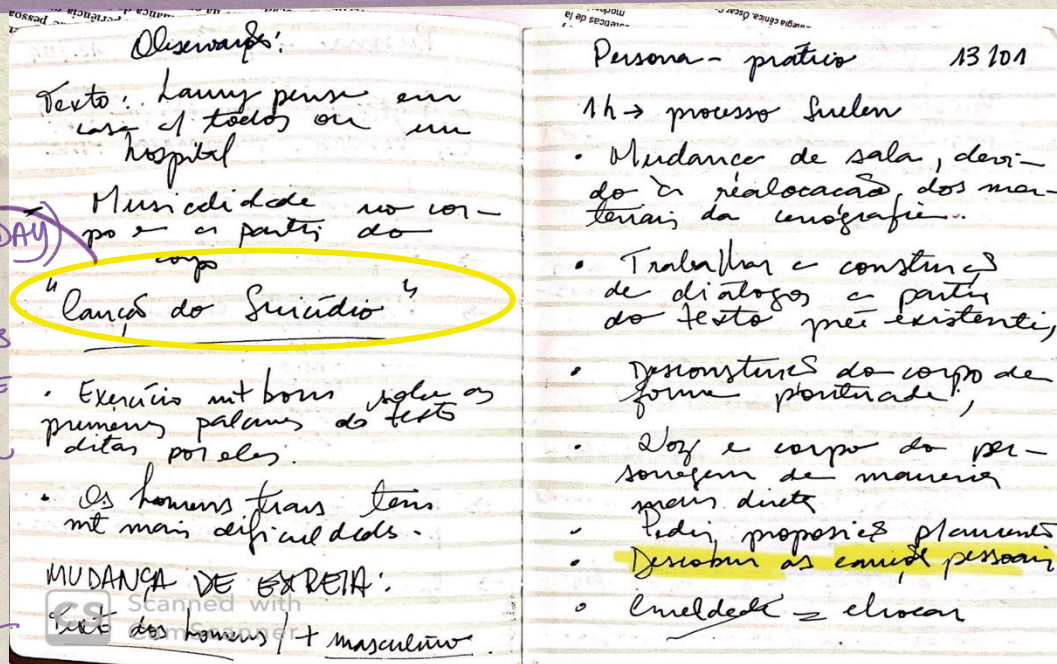 Observações:
Texto: Lanny pense em
casa c/ todos ou um
hospital
Musicalidade no cor-
po e a partir do
corpo
"Canção do Suicídio"
. Exercício mt bom sobre as
primeiras palavras do texto
ditas por eles.
. Os homens trans tem
mt mais dificuldade.
MUDANÇA DE ESTREIA:
Texto dos homens / + masculino
DAY)
CS Scanned with
CamScanner
Persona - prático 13/01
1h → processo Suelen
. Mudança de sala, devi-
do à realocação dos ma-
teriais da cenografia.
. Trabalhar a construçã
de diálogos a partir
do texto pré existente,
. Desconstrução do corpo de
forma pontuada,
. Voz e corpo do per-
sonagem de maneira
mais direta
. Pedir proposição
. Descobrir as canções pessoais
. Crueldade = chocar